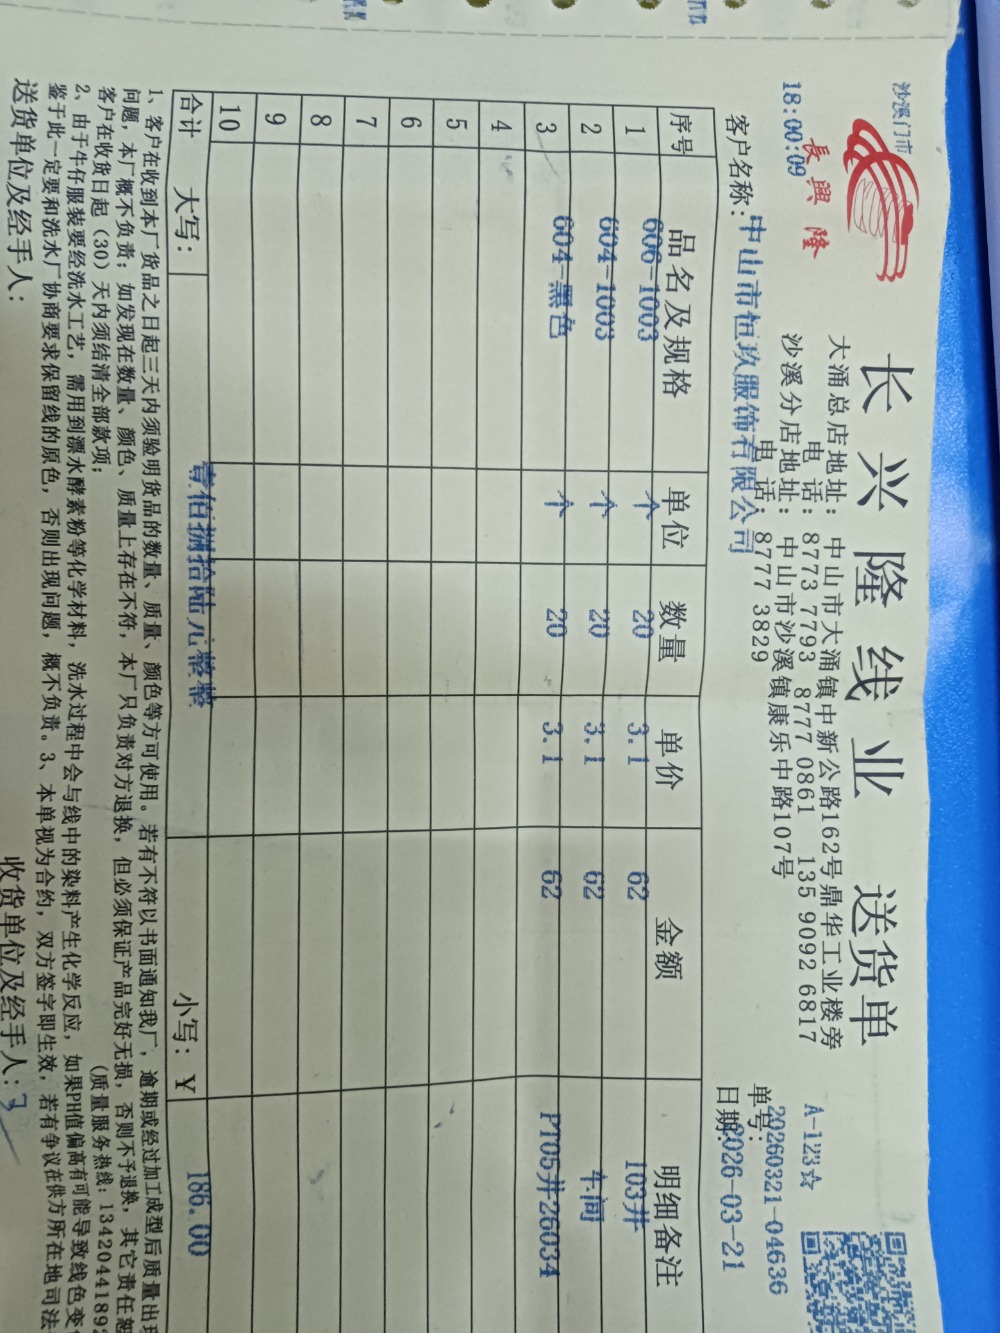 沙溪门市
18:00:09
長興隆
长兴隆线业 送货单
大涌总店地址：中山市大涌镇中新公路162号鼎华工业楼旁
电话：8773 7793 8777 0861 135 9092 6817
沙溪分店地址：中山市沙溪镇康乐中路107号
电话：8777 3829
A-123☆
单号：20260321-04636
日期：2026-03-21
客户名称：中山市恒玖服饰有限公司
序号 品名及规格 单位 数量 单价 金额 明细备注
1 606-1003 个 20 3.1 62 103井
2 604-1003 个 20 3.1 62 车间
3 604-黑色 个 20 3.1 62 PT05井26034
4
5
6
7
8
9
10
合计 大写：壹佰捌拾陆元整 小写：¥ 186.00
1、客户在收到本厂货品之日起三天内须验明货品的数量、质量、颜色等方可使用。若有不符以书面通知我厂，逾期或经过加工成型后质量出现
问题，本厂概不负责；如发现在数量、颜色、质量上存在不符，本厂只负责对方退换，但必须保证产品完好无损，否则不予退换，其它责任恕
客户在收货日起（30）天内须结清全部款项； （质量服务热线：1342044189
2、由于牛仔服装要经洗水工艺，需用到漂水酵素粉等化学材料，洗水过程中会与线中的染料产生化学反应，如果PH值偏高有可能导致线色变
鉴于此一定要和洗水厂协商要求保留线的原色，否则出现问题，概不负责。3、本单视为合约，双方签字即生效，若有争议在供方所在地司法
送货单位及经手人： 收货单位及经手人：